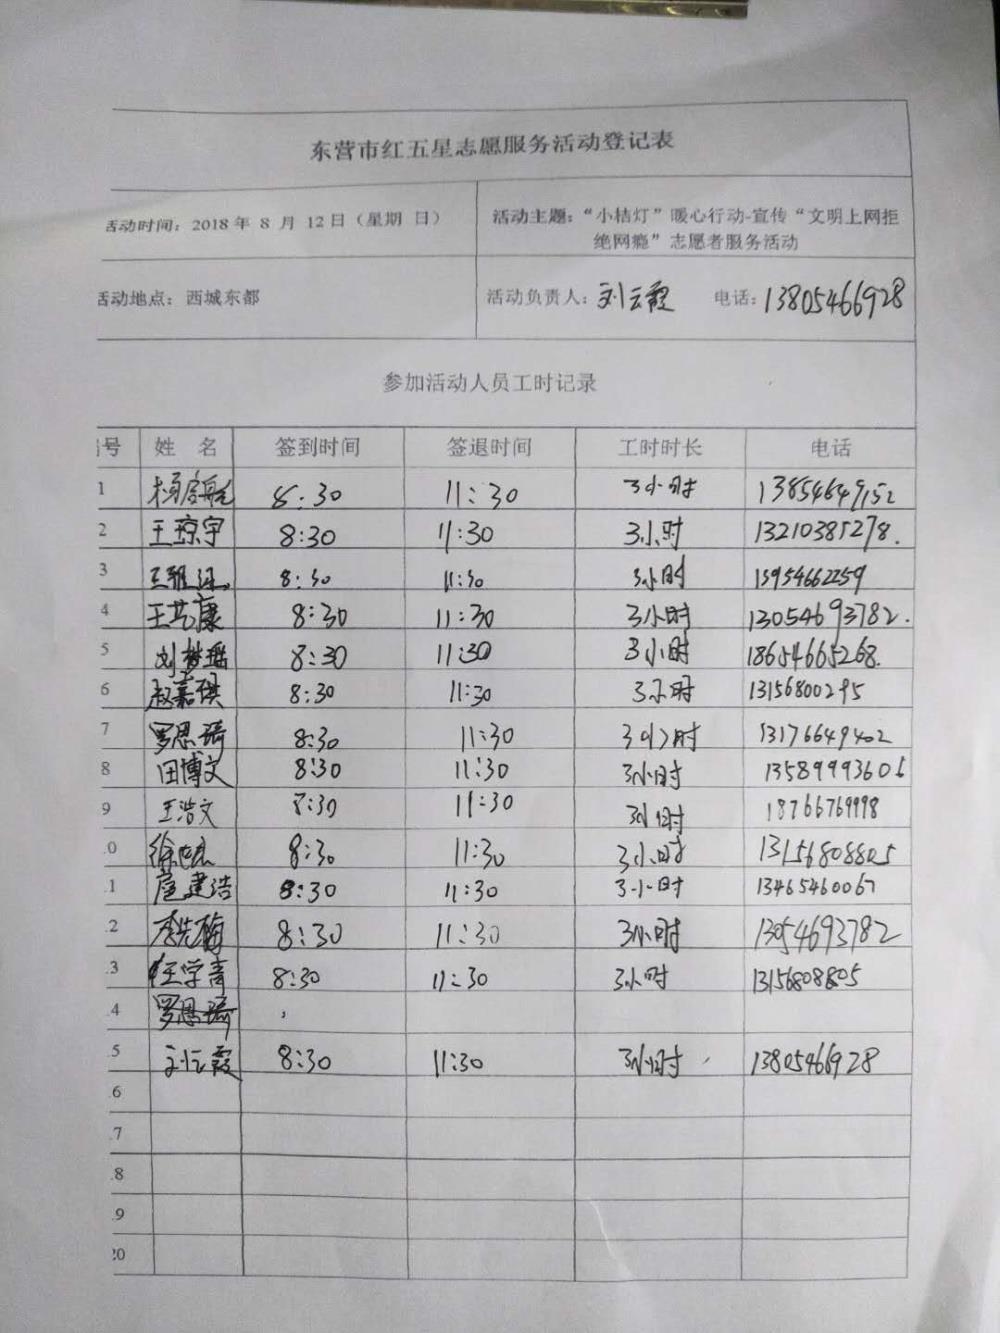 东营市红五星志愿服务活动登记表
活动时间：2018 年 8 月 12 日（星期 日）
活动主题：“小桔灯”暖心行动-宣传“文明上网拒
绝网瘾”志愿者服务活动
活动地点：西城东都
活动负责人：刘云霞 电话：13805466928
参加活动人员工时记录
号 姓 名 签到时间 签退时间 工时时长 电话
1 8:30 11:30 3小时 13854649152
2 王琼宇 8:30 11:30 3小时 13210385278.
3 8:30 11:30 3小时 15954662259
4 王艺康 8:30 11:30 3小时 13054693782.
5 刘梦瑶 8:30 11:30 3小时 18654665268.
6 赵嘉祺 8:30 11:30 3小时 13156800295
7 罗思琦 8:30 11:30 3小时 13176649402
8 田博文 8:30 11:30 3小时 13589993605
9 王浩文 8:30 11:30 3小时 18766769998
0 8:30 11:30 3小时 13156808805
1 扈建浩 8:30 11:30 3小时 13465460067
2 李先梅 8:30 11:30 3小时 13054693782
3 任学青 8:30 11:30 3小时 13156808805
4 罗思琦
5 刘云霞 8:30 11:30 3小时 13805466928
6
7
8
9
20